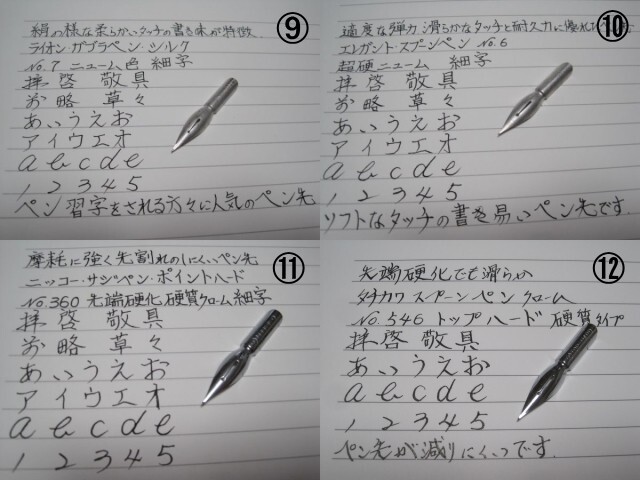 ⑨
絹の様な柔らかいタッチの書き味が特徴
ライオン・ガブラペン・シルク
No.7 ニューム色 細字
拝啓 敬具
前略 草々
あいうえお
アイウエオ
a b c d e
1 2 3 4 5
ペン習字をされる方々に人気のペン先
⑩
適度な弾力 滑らかなタッチと耐久力に優れ
エレガント・スプンペン No.6
超硬ニューム 細字
拝啓 敬具
前略 草々
あいうえお
アイウエオ
a b c d e
1 2 3 4 5
ソフトなタッチの書き易いペン先です。
⑪
摩耗に強く先割れのしにくいペン先
ニッコー・サジペン・ポイントハード
No.360 先端硬化 硬質クローム 細字
拝啓 敬具
前略 草々
あいうえお
アイウエオ
a b c d e
1 2 3 4 5
⑫
先端硬化でも滑らか
タチカワ スプーンペン クローム
No.546 トップハード 硬質タイプ
拝啓 敬具
あいうえお
a b c d e
1 2 3 4 5
ペン先が減りにくいです。